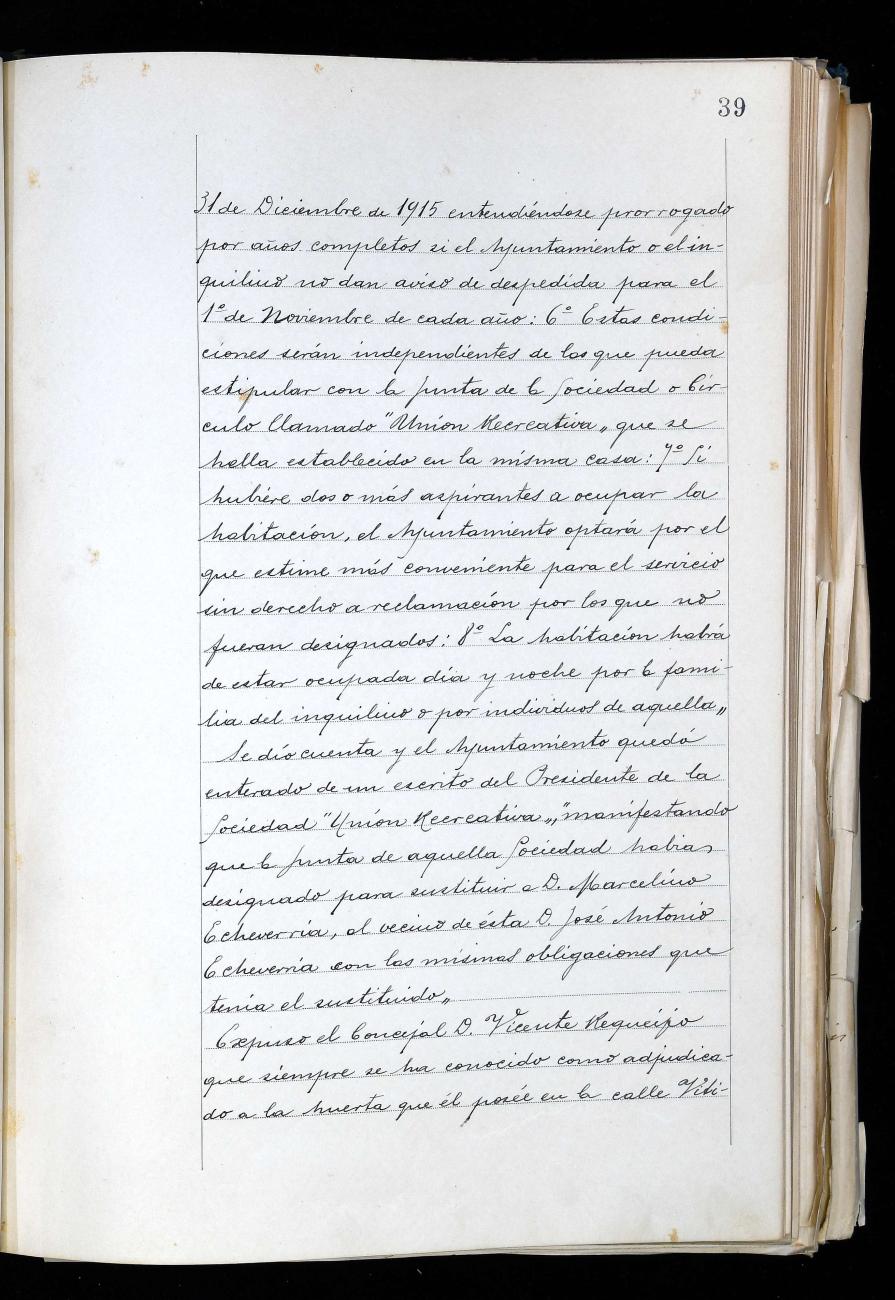 39
31 de Diciembre de 1915 entendiéndose prorrogado
por años completos si el Ayuntamiento o el in-
quilino no dan aviso de despedida para el
1º de Noviembre de cada año: 6º Estas condi-
ciones serán independientes de las que pueda
estipular con la Junta de la Sociedad o Cír-
culo llamado "Unión Recreativa„ que se
halla establecido en la misma casa: 7º Si
hubiere dos o más aspirantes a ocupar la
habitación, el Ayuntamiento optará por el
que estime más conveniente para el servicio
sin derecho a reclamación por los que no
fueran designados: 8º La habitación habrá
de estar ocupada día y noche por la fami-
lia del inquilino o por individuos de aquella„
Se dío cuenta y el Ayuntamiento quedó
enterado de un escrito del Presidente de la
Sociedad "Unión Recreativa„," manifestando
que la Junta de aquella Sociedad habia
designado para sustituir a D. Marcelino
Echeverría, al vecino de ésta D. José Antonio
Echeverria con las mismas obligaciones que
tenía el sustituido„
Expuso el Concejal D. Vicente Requeijo
que siempre se ha conocido como adjudica-
do a la huerta que él posée en la calle Viti-